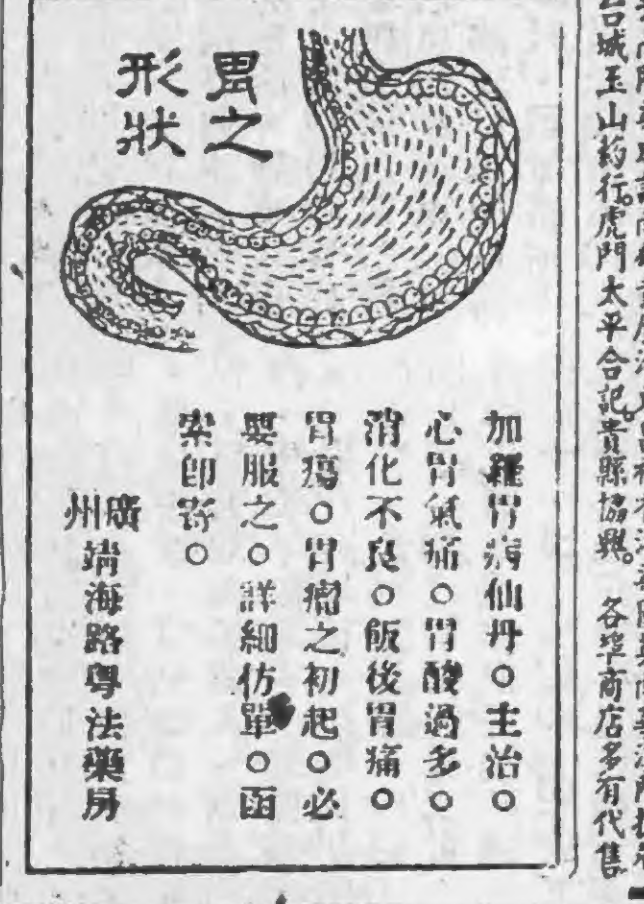 胃之
形狀
加羅胃病仙丹○主治○
心胃氣痛○胃酸過多○
消化不良○飯後胃痛○
胃瘍○胃瘤之初起○必
要服之○詳細仿單○函
索即寄○
廣州靖海路粵法藥房
城玉山藥行。虎門太平合記貴縣協興。各埠商店多有代售